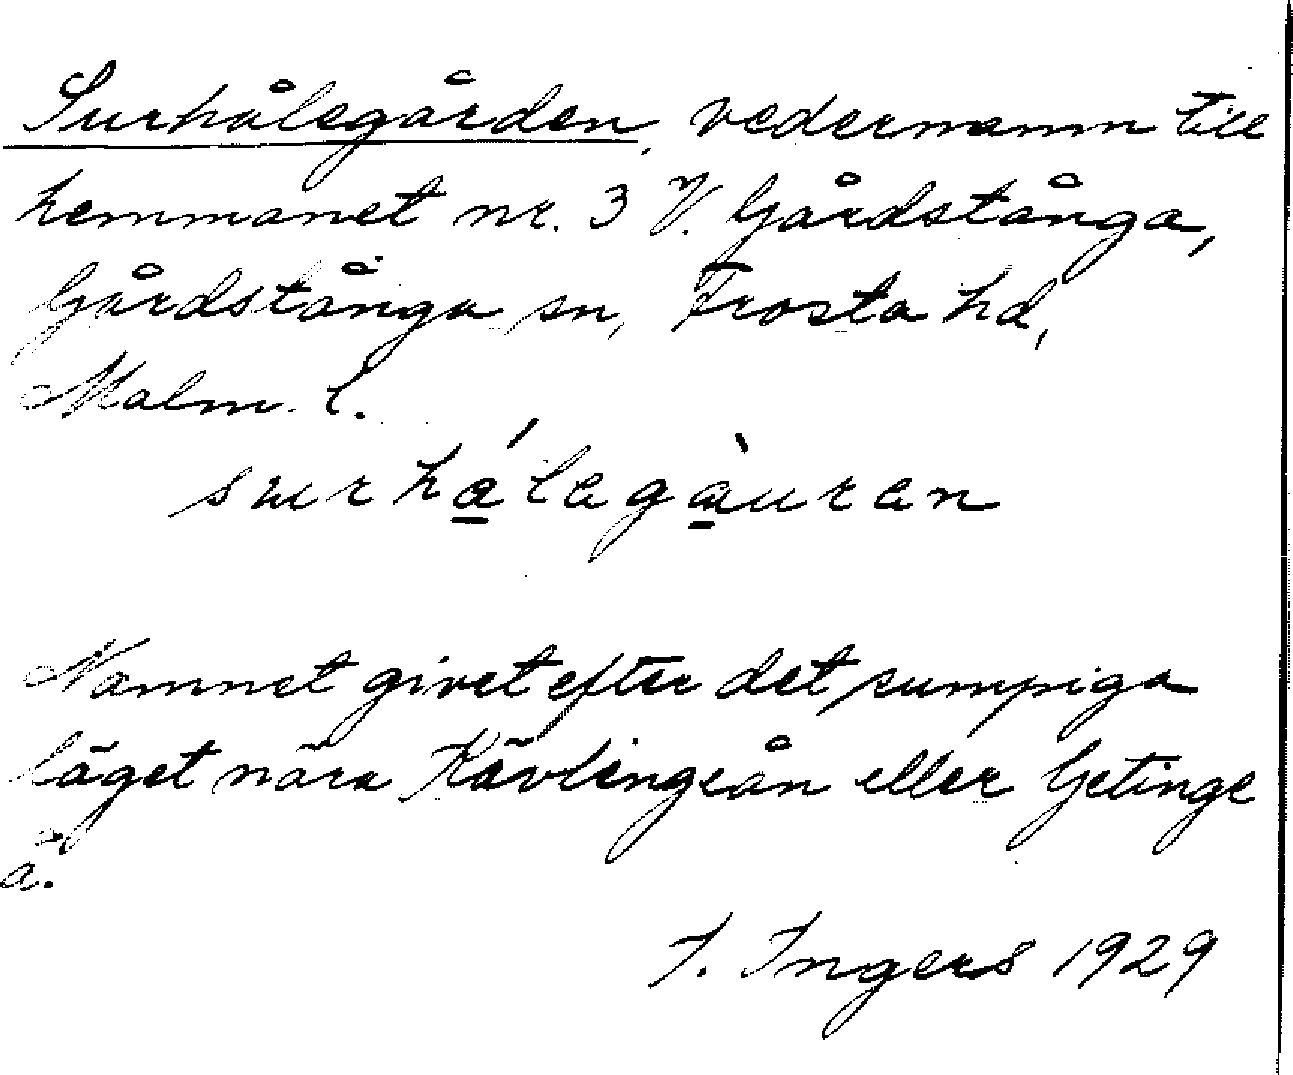 Surhålegården, vedernamn till
hemmanet nr. 3 V. Gårdstånga,
Gårdstånga sn, Frosta hd,
Malm. l.
surhá̲lagàu̲ran
Namnet givet efter det sumpiga
läget nära Kävlingeån eller Getinge
å.
I. Ingers 1929